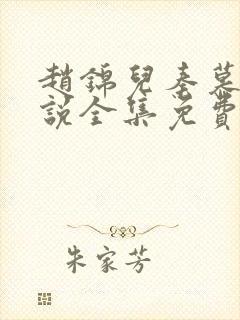 趙錦兒秦慕
說全集免費
朱家芳